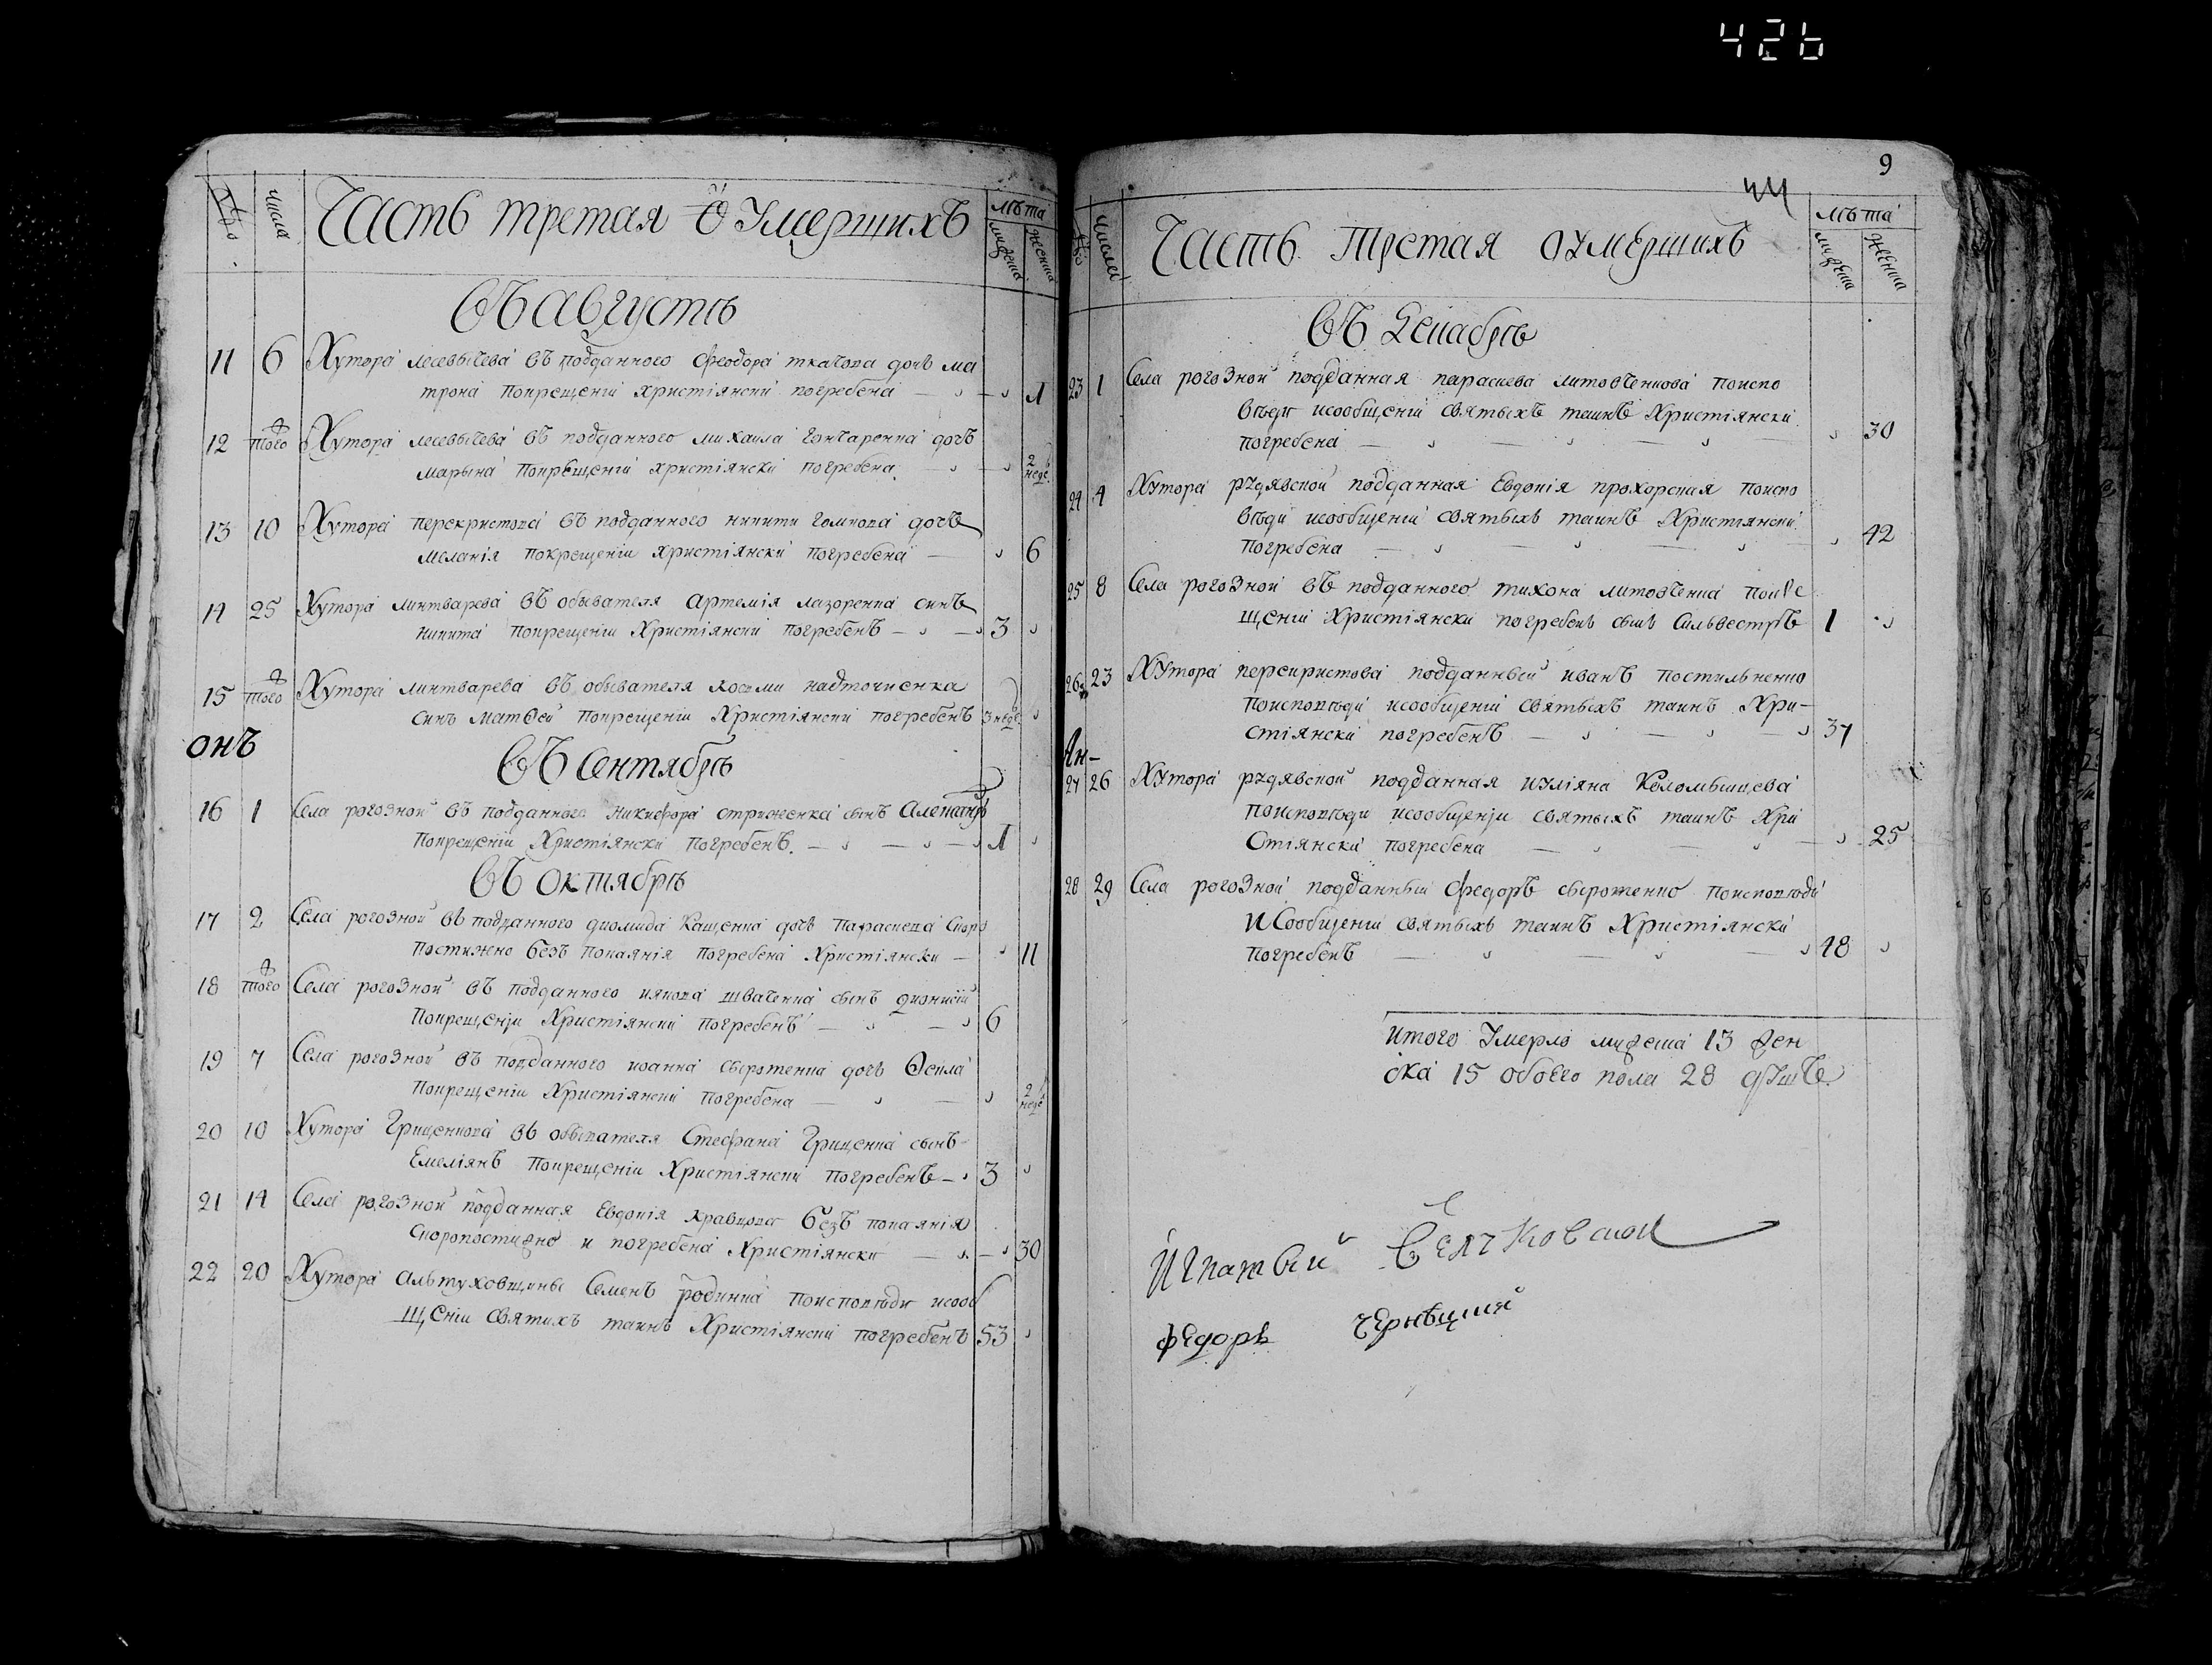 426
№
числа
Часть третая Ѿ Умершихъ
лѣта
мужеска
женска
въ августѣ
11 6 Хутора лесевычева въ подданного Феодора ткачова дочь ма
трона покрещеніи христіянски погребена 1
12 того Хутора лесевычева въ подданного михаила гончаренка дочь
марына покрещеніи христіянски погребена 2 неде
13 10 Хутора перекристова въ подданного никити дочь
меланія покрещеніи христіянски погребена 6
14 25 Хутора линтварева въ обывателя Артемія лазоренка синъ
никита покрещеніи Христіянски погребенъ 3
15 того Хутора линтварева въ обывателя косми надточиенка
синъ матѳей покрещеніи Христіянски погребенъ 3 неде
онъ
Въ Сентябрѣ
16 1 Села рогозной въ подданного никифора стриженка сынъ Алеѯандръ
покрещеніи Христіянски погребенъ 1
въ октябрѣ
17 2 Села рогозной въ подданного диомида Кащенка дочь Параскева Скоро
постижно безъ покаянія погребена Христіянски 11
18 того Села рогозной въ подданного якова шваченка сынъ дионисій
покрещеніи Христіянски погребенъ 6
19 7 Села рогозной въ подданного иоанна сыротенка дочь Ѳекла
покрещеніи Христіянски погребена 2 неде
20 10 Хутора Гриценкова въ обывателя Стефана Гриценка сынъ
Емеліянъ покрещеніи Христіянски погребенъ 3
21 14 Села рогозной подданная Евдокія кравцова безъ покаянія
скоропостижно и погребена Христіянски 30
22 20 Хутора Альтуховщины Семенъ родинка поисповѣди исооб
щеніи святихъ таинъ Христіянски погребенъ 53
9
№
числа
Часть Третая оумершихъ
лѣта
мужеска
женска
въ Декабрѣ
23 1 Села рогозной подданная параскева литовченкова поиспо
вѣди исообщеніи святыхъ таинъ Христіянски
погребена 30
24 4 Хутора рудявской подданная Евдокія прохорская поиспо
вѣди исообщеніи святыхъ таинъ Христіянски
погребена 42
25 8 Села рогозной въ подданного тихона литовченка покре
щеніи Христіянски погребенъ сынъ Сильвестръ 1
26 23 Хутора перекристова подданный иванъ постильненко
поисповѣди исообщеніи святыхъ таинъ Хри-
стіянски погребенъ 37
Ян-
27 26 Хутора рудявской подданная иуліяна Коломыйцева
поисповѣди исообщеніи святыхъ таинъ Хри
стіянски погребена 25
28 29 Села рогозной подданный Федоръ сыротенко поисповѣди
и Сообщеніи святыхъ таинъ Христіянски
погребенъ 48
итого Умерло мужеска 13 жен
ска 15 обоего пола 28 душъ
Игнатьий
федоръ